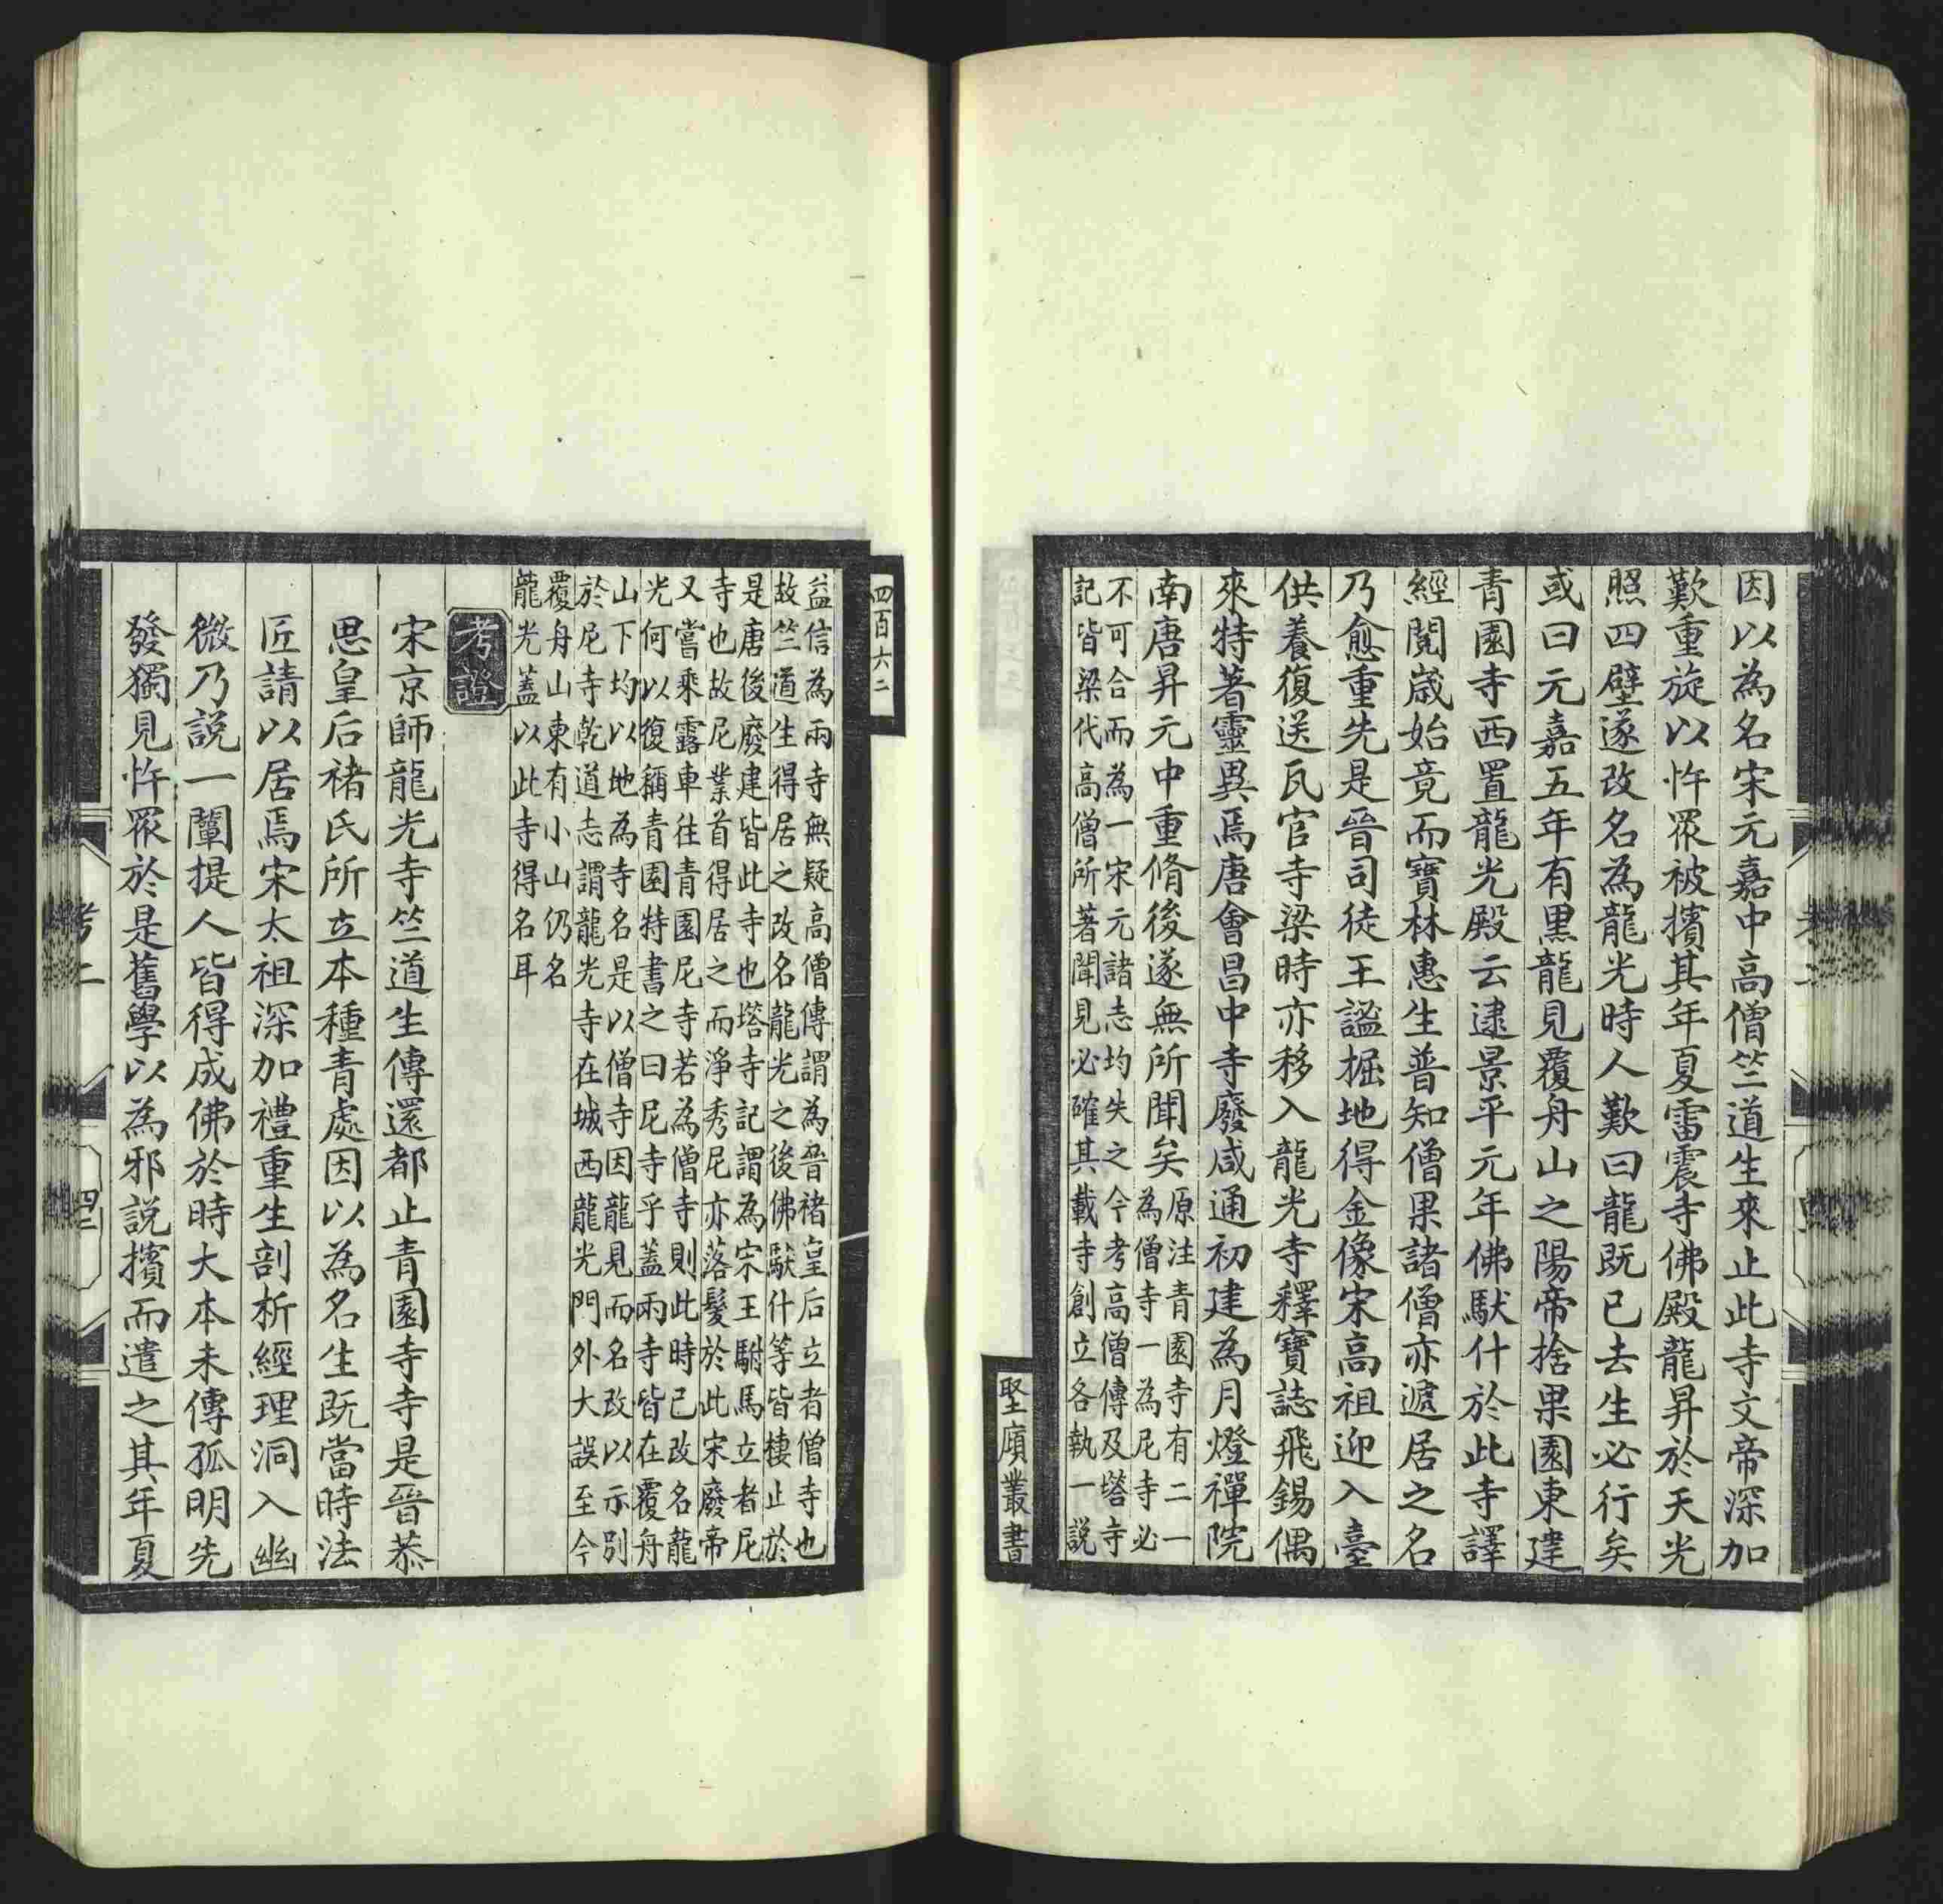 因以為名宋元嘉中高僧竺道生來止此寺文帝深加
歎重旋以忤眾被擯其年夏雷震寺佛殿龍昇於天光
照四壁遂改名為龍光時人歎曰龍既已去生必行矣
或曰元嘉五年有黑龍見覆舟山之陽帝捨果園東建
青園寺西置龍光殿云逮景平元年佛馱什於此寺譯
經閱歲始竟而寶林惠生普知僧果諸僧亦遞居之名
乃愈重先是晉司徒王謐掘地得金像宋高祖迎入臺
供養復送瓦官寺梁時亦移入龍光寺釋寶誌飛錫偶
來特著靈異焉唐會昌中寺廢咸通初建為月燈禪院
南唐昇元中重脩後遂無所聞矣
原注青園寺有二一
為僧寺一為尼寺必
不可合而為一宋元諸志均失之今考高僧傳及塔寺
記皆梁代高僧所著聞見必確其載寺創立各執一説
堅頎叢書
四百六二
益信為兩寺無疑高僧傳謂為晉褚皇后立者僧寺也
故竺道生得居之改名龍光之後佛馱什等皆棲止於
是唐後廢建皆此寺也塔寺記謂為宋王駙馬立者尼
寺也故尼業首得居之而淨秀尼亦落髮於此宋廢帝
又嘗乘露車往青園尼寺若為僧寺則此時已改名龍
光何以復稱青園特書之曰尼寺乎蓋兩寺皆在覆舟
山下均以地為寺名是以僧寺因龍見而名改以示別
於尼寺乾道志謂龍光寺在城西龍光門外大誤至今
覆舟山東有小山仍名
龍光蓋以此寺得名耳
考證
宋京師龍光寺竺道生傳還都止青園寺寺是晉恭
思皇后褚氏所立本種青處因以為名生既當時法
匠請以居焉宋太祖深加禮重生剖析經理洞入幽
微乃説一闡提人皆得成佛於時大本未傳孤明先
發獨見忤眾於是舊學以為邪説擯而遣之其年夏
考二
四二